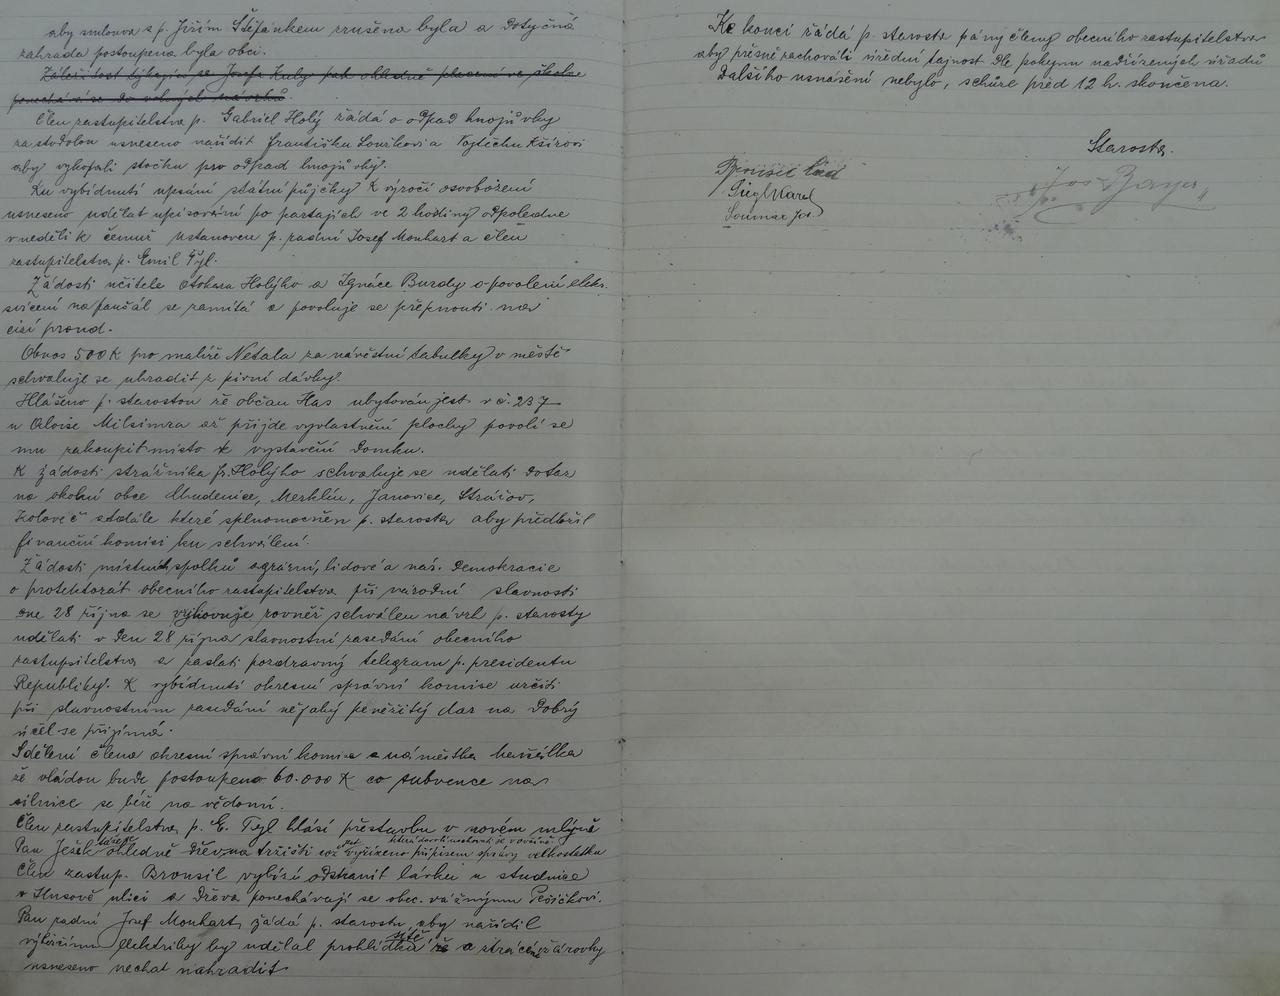 aby smlouva s p. Jiřím Štěpánkem zrušena byla a dotyčná
zahrada postoupena byla obci.
Záležitost týkající se Josefa Kuby
ponechává se do volných návrhů
Člen zastupitelstva p. Gabriel Holý žádá o odpad hnojůvky
za stodolou usneseno naříditi Františku Souškovi a Vojtěchu Kšírovi
aby vykopali stočku pro odpad hnojůvky.
Ku vybídnutí upsání státní půjčky k výročí osvobození
usneseno udělat upisování po partajích ve 2 hodiny odpoledne
v neděli k čemuž ustanoven p. radní Josef Monhart a člen
zastupitelstva p. Emil Tyl.
Žádosti učitele Otokara Holýho a Ignáce Burdy o povolení elektr.
svícení na paušál se zamítá a povoluje se přepnouti na
cizí proud.
Obnos 500 K pro malíře Netala za návěstní tabulky v městě
schvaluje se uhradit z pivní dávky.
Hlášeno p. starostou že občan Has ubytován jest v č. 237
u Aloise Milsimra až přijde vyvlastnění plochy povolí se
mu zakoupit místo k vystavení domku.
K žádosti strážníka p. Holýho schvaluje se udělati dotaz
na okolní obce Chudenice, Merklín, Janovice, Strážov,
Koloveč a t. dále které splnomocněn p. starosta aby předložil
finanční komisi ku schválení.
Žádosti místních spolků agrární, lidové a nár. demokracie
o protektorát obecního zastupitelstva při národní slavnosti
dne 28 října se vyhovuje rovněž schválen návrh p. starosty
udělati v den 28 října slavnostní zasedání obecního
zastupitelstva a zaslati pozdravný telegram p. presidentu
Republiky. K vybídnutí okresní správní komise určiti
při slavnostním zasedání nějaký peněžitý dar na dobrý
účel se přijímá.
Sdělení člena okresní správní komise a náměstka
že vládou bude postoupeno 60.000 K co subvence na
silnice se béře na vědomí.
Člen zastupitelstva p. E. Tyl hlásí přestavbu v novém mlýně
Pan Ješek táže se ohledně dřev na tržišti což jest vyřízeno přípisem správy velkostatku
Člen zastup. Brousil vybízí odstranit lávku u studnice
v Husově ulici a dřeva ponechávají se obec. vážnýmu Pešíčkovi.
Pan radní Josef Monhart žádá p. starostu, aby nařídil
elektriky by udělal prohlídku sítě a ztracené žárovky
usneseno nechat nahradit.
Ke konci žádá p. starosta pány členy obecního zastupitelstva
aby přesně zachovali úřední tajnost dle pokynu nadřízených úřadů
Dalšího usnášení nebylo, schůze před 12 h. skončena.
Starosta.
Brousil
Karel
Soumar Jos.
Jos.